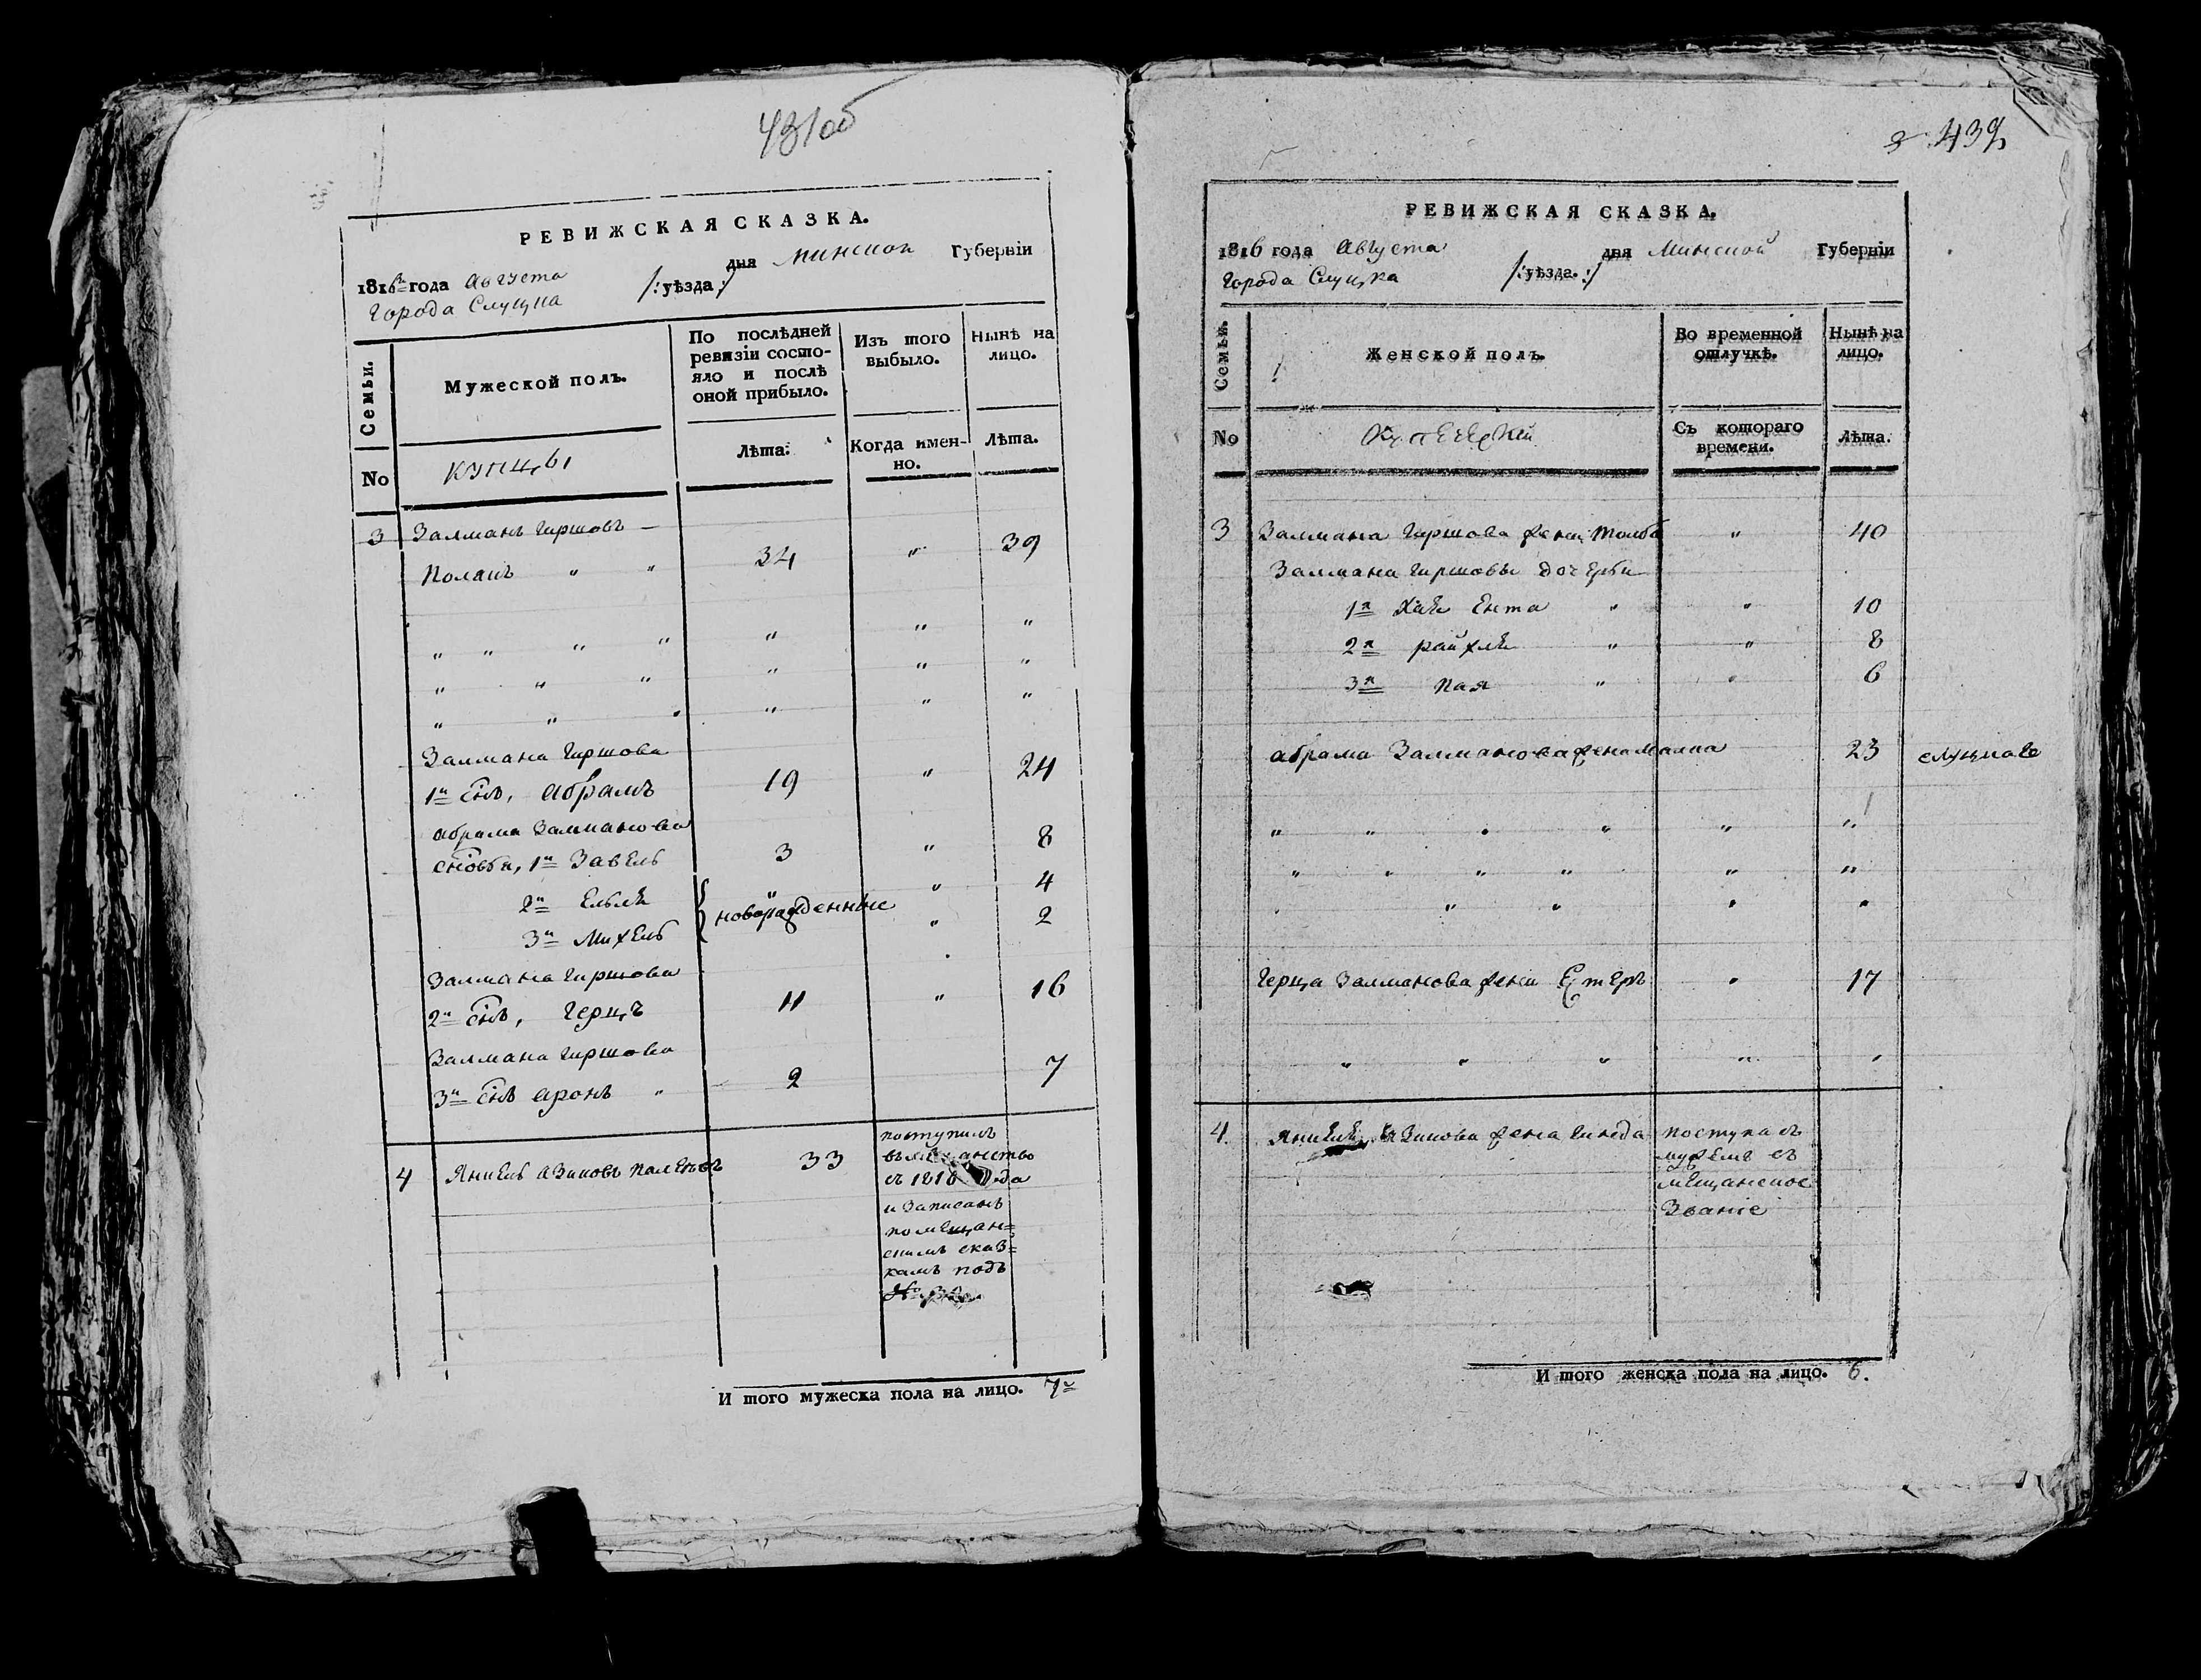 431об
РЕВИЖСКАЯ СКАЗКА.
1816 года Августа дня Минской Губерніи
Города Слуцка /:уѣзда:/
Семьи.
Мужеской полъ.
По послѣдней ревизіи состо-
яло и послѣ
оной прибыло.
Изъ того
выбыло.
Нынѣ на
лицо.
№
Купцы
Лѣта.
Когда имен-
но.
Лѣта.
3 Залманъ Гиршовъ —
Полакъ " " 34 " 39
" " " " " " "
" " " " " "
" " " " " "
Залмана Гиршова
1й снъ, Абрамъ 19 " 24
Абрама Залманова
сновья, 1й Завель 3 " 8
2й Ельля " 4
новорожденные
3й Михель " 2
Залмана Гиршова
2й снъ, Герцъ 11 " 16
Залмана Гиршова
3й снъ Аронъ " 2 7
4 Янкель Азиковъ 33
поступилъ
въ мещанство
съ 1816 года
и записанъ
по мещан=
скимъ сказ=
камъ подъ
№
И того мужеска пола на лицо. 7ь
432
РЕВИЖСКАЯ СКАЗКА.
1816 года Августа дня Минской Губерніи
Города Слуцка /:уѣзда.:/
Семьи.
Женской полъ.
Во временной
отлучкѣ.
Нынѣ на
лицо.
№
Съ котораго
времени.
Лѣта.
3 Залмана Гиршова жена " 40
Залмана Гиршова дочерьи
1я Хая Ента " " 10
2я Райхля " " 8
3я Пая " " 6
Абрама Залманова жена Малка 23
" " " " " "
" " " " " "
" " " " "
Герца Залманова жена Естеръ " 17
" " " " "
4. Янкеля Азикова жена Гинда
поступа съ
мужемъ въ
мещанское
званіе
И того женска пола на лицо. 6.